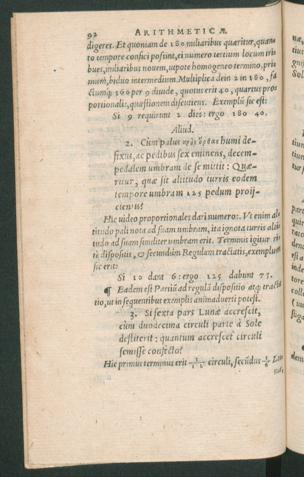 92 ARITHMETICÆ
digeret. Et quoniam de 180 miliaribus quæritur, quan-
to tempore confici possint, ei numero tertium locum tri
bues, miliaribus novem, utpote homogeneo termino, pri
mum, biduo intermedium. Multiplica 2 in 180, fa
cit 360 per 9 divide, quotus erit 40, quartus pro-
portionalis, quæstionem discutiens. Exemplū sic est:
Si 9 requirunt 2 dies: ergo 180 40.
Aliud.
2. Cùm palus humi de-
fixus, ac pedibus sex eminens, decem-
pedalem umbram de se mittit: Quæ-
ritur, quæ sit altitudo turris eodem
tempore umbram 125 pedum proij-
cientis?
Hic video proportionales dari numeros. Vt enim al-
titudo pali nota ad suam umbram, ita ignota turris alti-
tudo ad suam similiter umbram erit. Terminis igitur ri-
tè dispositis, & secundùm Regulam tractatis, exemplum
sic erit:
Si 10 data 6: ergo 125 dabunt 75.
¶ Eadem est Pariū ad regulā dispositio atq; tracta
tio, ut in sequentibus exemplis animadverti potest.
3. Si sexta pars Lunæ accrescit,
cùm duodecima circuli parte à Sole
destiterit: quantum accrescet circuli
semisse confecto?
Hic primus terminus erit circuli, secūdus